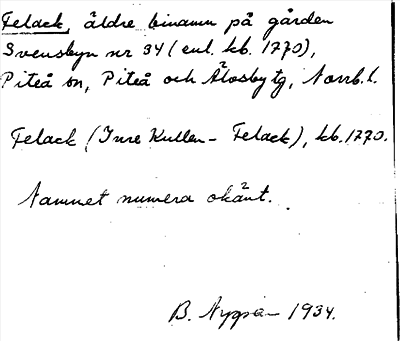 Felack, äldre binamn på gården
Svensbyn nr 34 (enl. kb. 1770),
Piteå sn, Piteå och Älvsby tg, Norrb. l.
Felack (Inre Kullen - Felack), kb. 1770.
Namnet numera okänt.
B. Nygren 1934.